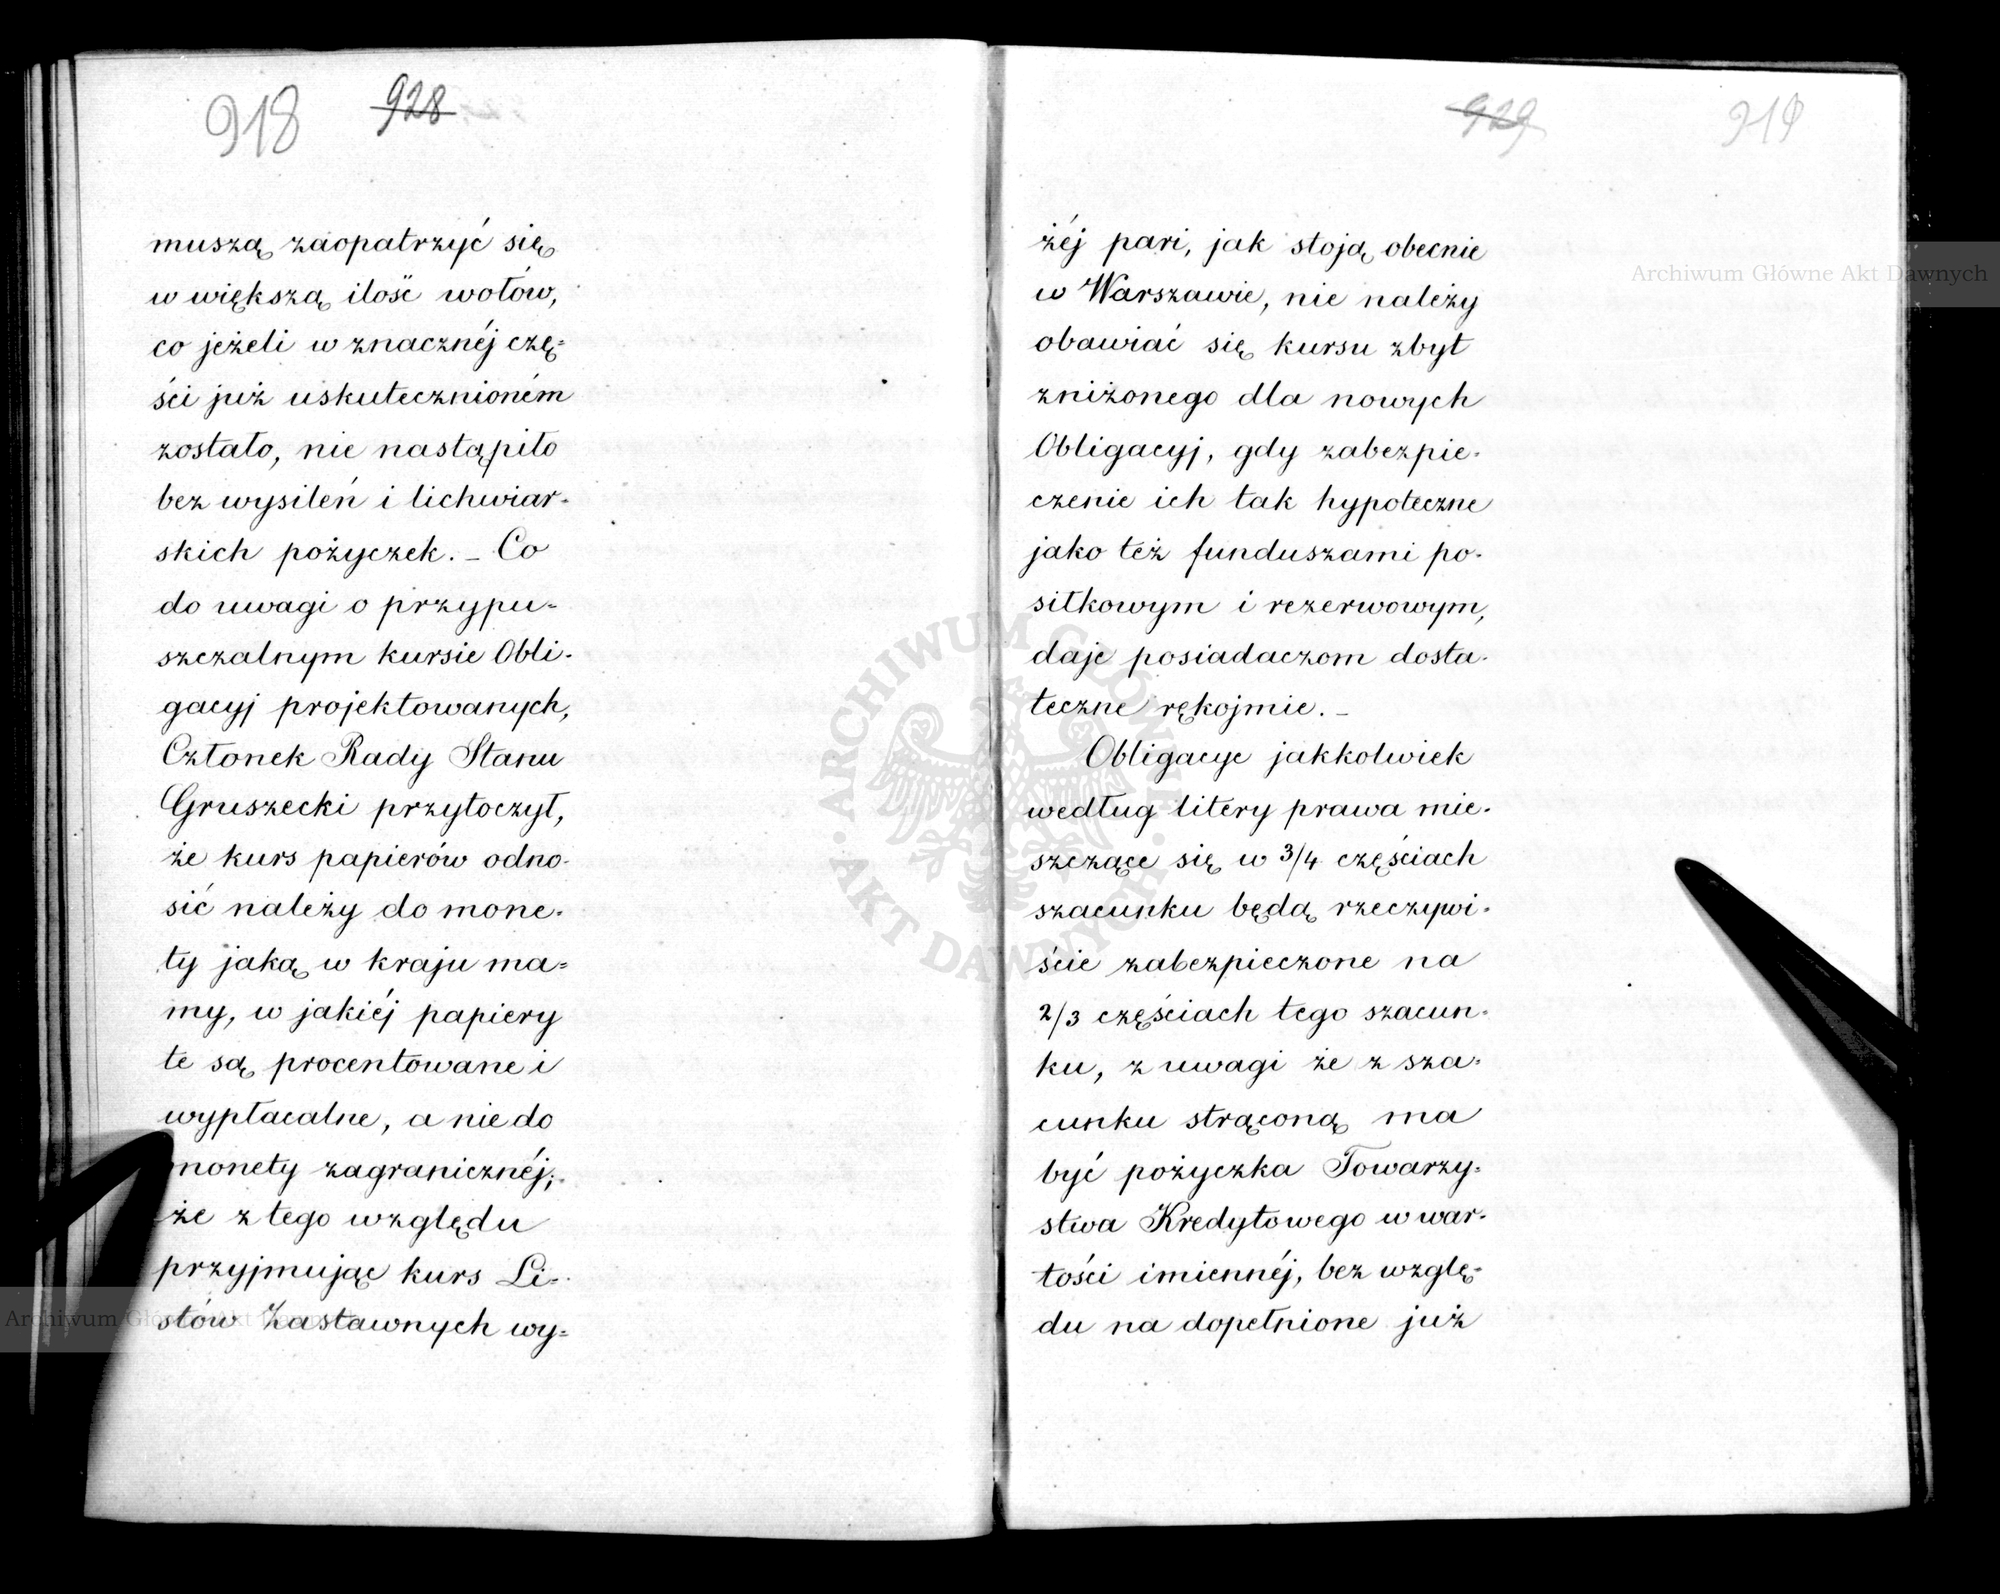 918 928
muszą zaopatrzyć się
w większą ilość wołów,
co jeżeli w znacznéj czę=
ści już uskutecznioném
zostało, nie nastąpiło
bez wysileń i lichwiar-
skich pożyczek. – Co
do uwagi o przypu-
szczalnym kursie Obli-
gacyj projektowanych,
Członek Rady Stanu
Gruszecki przytoczył,
że kurs papierów odno-
sić należy do mone-
ty jaką w kraju ma=
my, w jakiéj papiery
te są procentowane i
wypłacalne, a nie do
monety zagranicznéj;
że z tego względu
przyjmując kurs Li-
stów Zastawnych wy=
929 919
żéj pari, jak stoją obecnie
w Warszawie, nie należy
obawiać się kursu zbyt
zniżonego dla nowych
Obligacyj, gdy zabezpie-
czenie ich tak hypoteczne
jako też funduszami po-
siłkowym i rezerwowym,
daje posiadaczom dosta-
teczne rękojmie. –
Obligacye jakkolwiek
według litery prawa mie-
szczące się w 3/4 częściach
szacunku będą rzeczywi-
ście zabezpieczone na
2/3 częściach tego szacun-
ku, z uwagi że z sza-
cunku strąconą ma
być pożyczka Towarzy-
stwa Kredytowego w war-
tości imiennéj, bez wzglę-
du na dopełnione już
Archiwum Główne Akt Dawnych
ARCHIWUM GŁÓWNE AKT DAWNYCH
Archiwum Główne Akt Dawnych